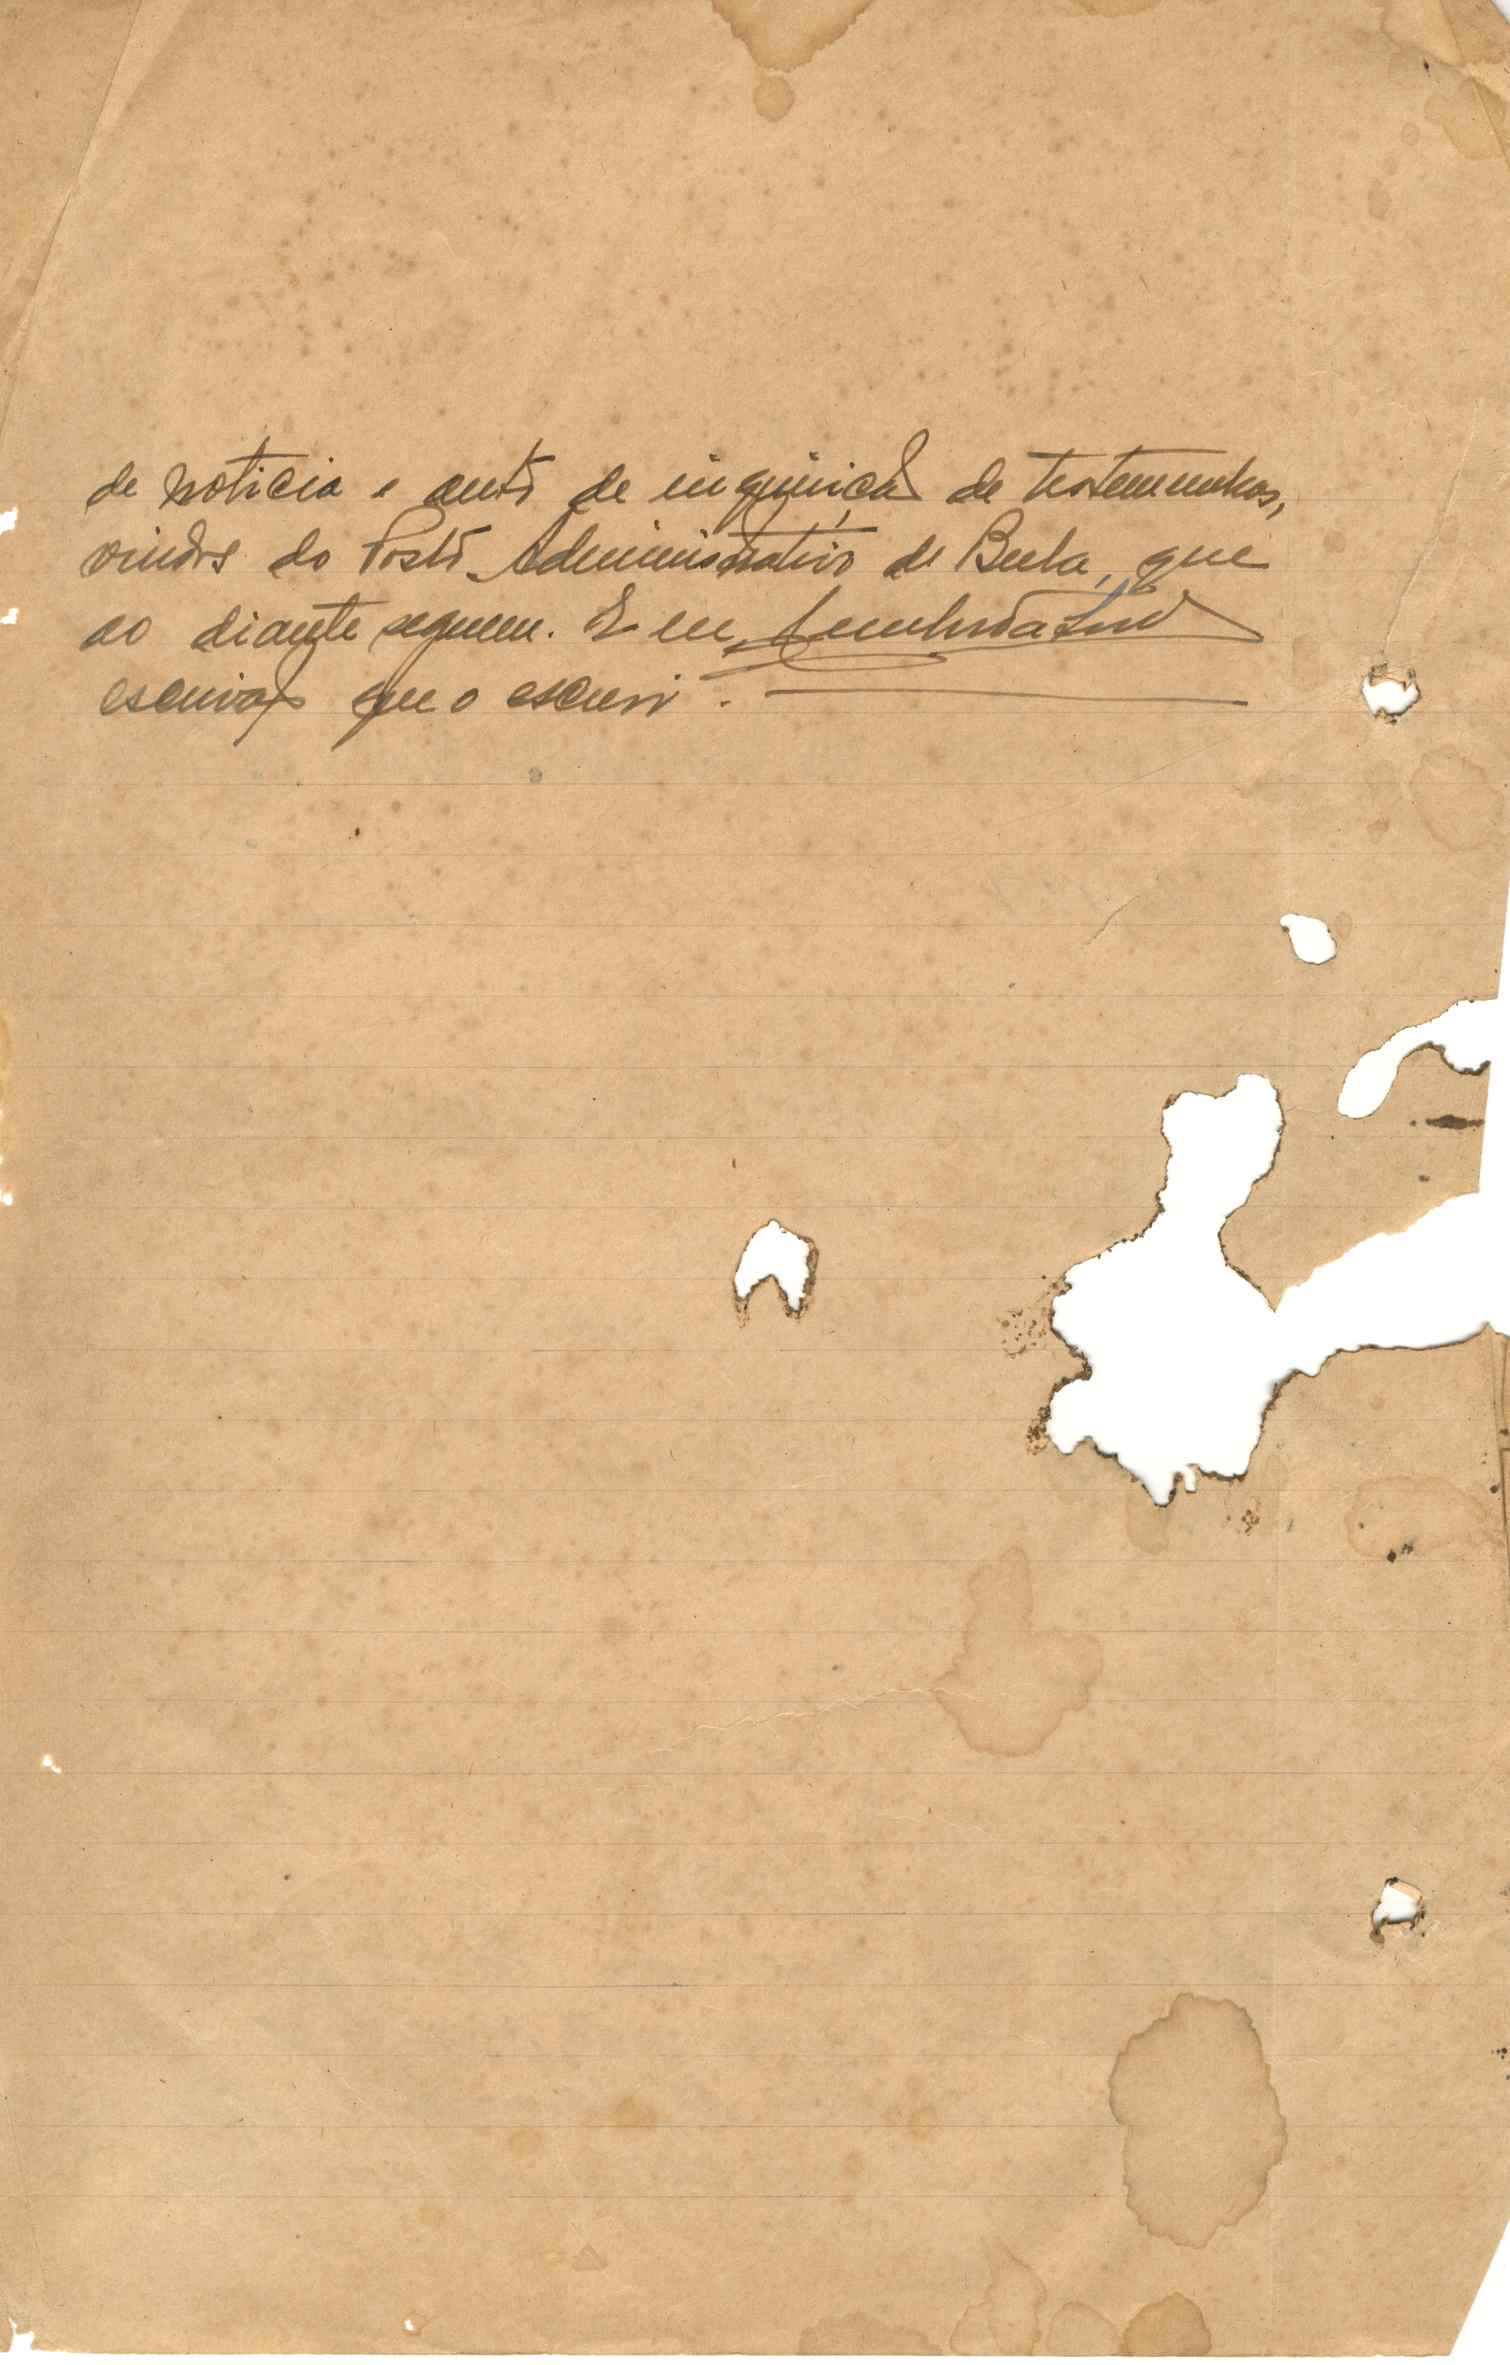 de noticia e auto de inquirição de testemunhas,
vindos do Posto Administrativo de Bula, que
ao diante seguem. E eu,
escrivão que o escrevi.